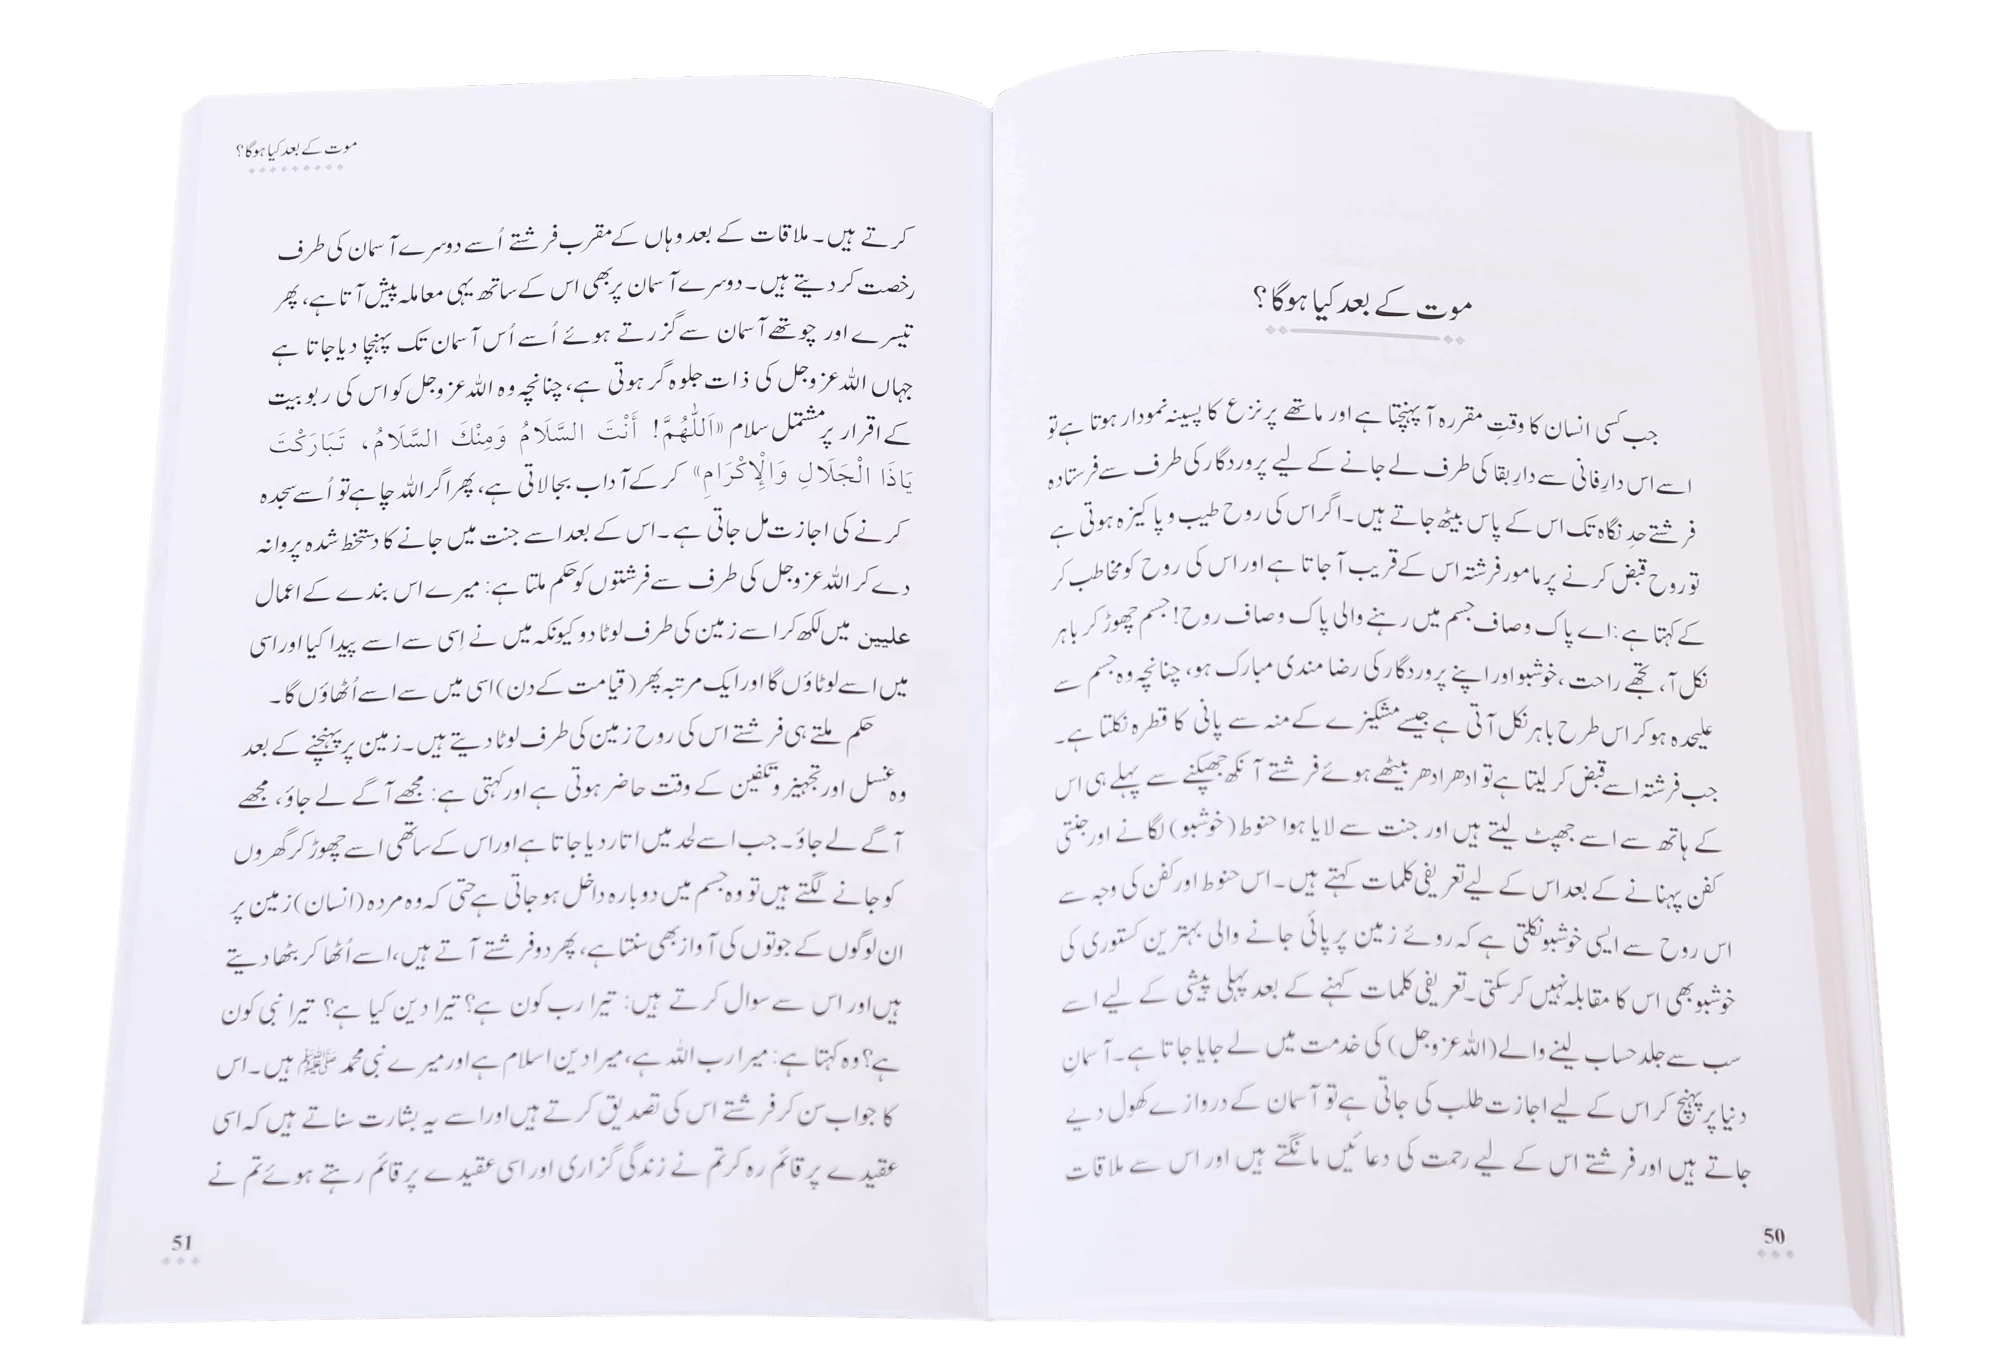 موت کے بعد کیا ہوگا؟
جب کسی انسان کا وقتِ مقررہ آ پہنچتا ہے اور ماتھے پر نزع کا پسینہ نمودار ہوتا ہے تو
اسے اس دارِ فانی سے دارِ بقا کی طرف لے جانے کے لیے پروردگار کی طرف سے فرستادہ
فرشتے حدِ نگاہ تک اس کے پاس بیٹھ جاتے ہیں۔ اگر اس کی روح طیب و پاکیزہ ہوتی ہے
تو روح قبض کرنے پر مامور فرشتہ اس کے قریب آ جاتا ہے اور اس کی روح کو مخاطب کر
کے کہتا ہے: اے پاک و صاف جسم میں رہنے والی پاک و صاف روح! جسم چھوڑ کر باہر
نکل آ، تجھے راحت، خوشبو اور اپنے پروردگار کی رضا مندی مبارک ہو، چنانچہ وہ جسم سے
علیحدہ ہو کر اس طرح باہر نکل آتی ہے جیسے مشکیزے کے منہ سے پانی کا قطرہ نکلتا ہے۔
جب فرشتہ اسے قبض کر لیتا ہے تو ادھر ادھر بیٹھے ہوئے فرشتے آنکھ جھپکنے سے پہلے ہی اس
کے ہاتھ سے اسے جھپٹ لیتے ہیں اور جنت سے لایا ہوا حنوط (خوشبو) لگانے اور جنتی
کفن پہنانے کے بعد اس کے لیے تعریفی کلمات کہتے ہیں۔ اس حنوط اور کفن کی وجہ سے
اس روح سے ایسی خوشبو نکلتی ہے کہ روئے زمین پر پائی جانے والی بہترین کستوری کی
خوشبو بھی اس کا مقابلہ نہیں کر سکتی۔ تعریفی کلمات کہنے کے بعد پہلی پیشی کے لیے اسے
سب سے جلد حساب لینے والے (اللہ عزوجل) کی خدمت میں لے جایا جاتا ہے۔ آسمانِ
دنیا پر پہنچ کر اس کے لیے اجازت طلب کی جاتی ہے تو آسمان کے دروازے کھول دیے
جاتے ہیں اور فرشتے اس کے لیے رحمت کی دعائیں مانگتے ہیں اور اس سے ملاقات
50
موت کے بعد کیا ہوگا؟
کرتے ہیں۔ ملاقات کے بعد وہاں کے مقرب فرشتے اُسے دوسرے آسمان کی طرف
رخصت کر دیتے ہیں۔ دوسرے آسمان پر بھی اس کے ساتھ یہی معاملہ پیش آتا ہے، پھر
تیسرے اور چوتھے آسمان سے گزرتے ہوئے اُسے اُس آسمان تک پہنچا دیا جاتا ہے
جہاں اللہ عزوجل کی ذات جلوہ گر ہوتی ہے، چنانچہ وہ اللہ عزوجل کو اس کی ربوبیت
کے اقرار پر مشتمل سلام «اَللّٰهُمَّ! أَنْتَ السَّلَامُ وَمِنْكَ السَّلَامُ، تَبَارَكْتَ
يَاذَا الْجَلَالِ وَالْإِكْرَامِ» کر کے آداب بجا لاتی ہے، پھر اگر اللہ چاہے تو اُسے سجدہ
کرنے کی اجازت مل جاتی ہے۔ اس کے بعد اسے جنت میں جانے کا دستخط شدہ پروانہ
دے کر اللہ عزوجل کی طرف سے فرشتوں کو حکم ملتا ہے: میرے اس بندے کے اعمال
علیین میں لکھ کر اسے زمین کی طرف لوٹا دو کیونکہ میں نے اِسی سے اسے پیدا کیا اور اسی
میں اسے لوٹاؤں گا اور ایک مرتبہ پھر (قیامت کے دن) اسی میں سے اسے اُٹھاؤں گا۔
حکم ملتے ہی فرشتے اس کی روح زمین کی طرف لوٹا دیتے ہیں۔ زمین پر پہنچنے کے بعد
وہ غسل اور تجہیز و تکفین کے وقت حاضر ہوتی ہے اور کہتی ہے: مجھے آگے لے جاؤ، مجھے
آگے لے جاؤ۔ جب اسے لحد میں اتار دیا جاتا ہے اور اس کے ساتھی اسے چھوڑ کر گھروں
کو جانے لگتے ہیں تو وہ جسم میں دوبارہ داخل ہو جاتی ہے حتی کہ وہ مردہ (انسان) زمین پر
ان لوگوں کے جوتوں کی آواز بھی سنتا ہے، پھر دو فرشتے آتے ہیں، اسے اُٹھا کر بٹھا دیتے
ہیں اور اس سے سوال کرتے ہیں: تیرا رب کون ہے؟ تیرا دین کیا ہے؟ تیرا نبی کون
ہے؟ وہ کہتا ہے: میرا رب اللہ ہے، میرا دین اسلام ہے اور میرے نبی محمد ﷺ ہیں۔ اس
کا جواب سن کر فرشتے اس کی تصدیق کرتے ہیں اور اسے یہ بشارت سناتے ہیں کہ اسی
عقیدے پر قائم رہ کر تم نے زندگی گزاری اور اسی عقیدے پر قائم رہتے ہوئے تم نے
51